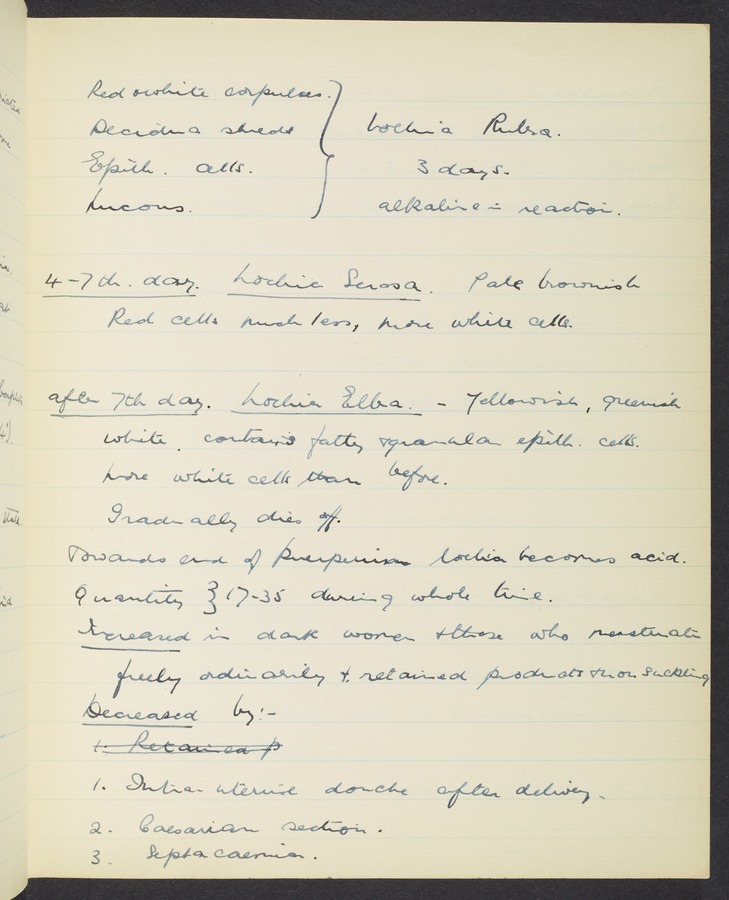 Red & white corpuscles. } 
Decidua shreds } Lochia Rubra.
Epith. cells. } 3 days.
Mucous. } alkaline in reaction.
4-7th. day. Lochia Serosa. Pale brownish
Red cells much less, more white cells.
after 7th day. Lochia Elba. - Yellowish, greenish
white. contains fatty & granular epith. cells.
more white cells than before.
Gradually dies off.
Towards end of puerperium lochia becomes acid.
Quantity } 17-35 during whole time.
Increased in dark women & those who menstruate
freely ordinarily & retained products & non suckling
Decreased by:-
1. Retained p
1. Intra-uterine douche after delivery.
2. Caesarian section.
3. Septacaemia.